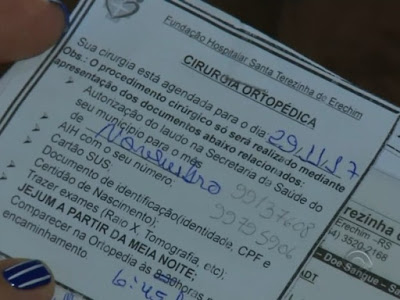 Fundação Hospitalar Santa Terezinha de Erechim
CIRURGIA ORTOPÉDICA
Sua cirurgia está agendada para o dia 29/11/17
Obs.: O procedimento cirúrgico só será realizado mediante
apresentação dos documentos abaixo relacionados:
Autorização do laudo na Secretaria de Saúde do
seu município para o mês
de Novembro
AIH com o seu número;
Cartão SUS;
Documento de identificação(identidade, CPF e
Certidão de Nascimento);
Trazer exames (Raio X, Tomografia, etc);
JEJUM A PARTIR DA MEIA NOITE;
Comparecer na Ortopedia às horas
encaminhamento
6:45
99137608
99795906
rezinha
Erechim -RS
3520-
Doe Sangue - Sa